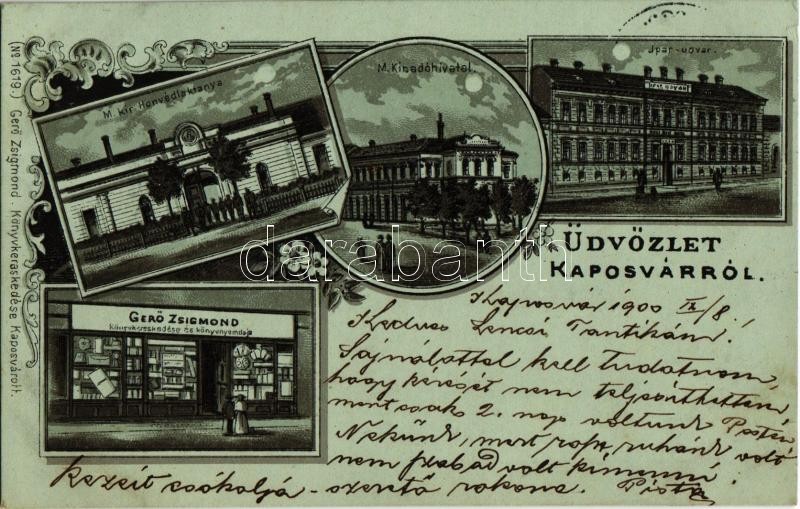 (No 1619.) Gerő Zsigmond. Könyvkereskedése Kaposvárott.
M. kir. Honvédlaktanya
M. K. adóhivatal.
Ipar-udvar.
IPAR UDVAR
ÜDVÖZLET
KAPOSVÁRRÓL.
GERŐ ZSIGMOND
Könyvkereskedése és könyvnyomdája
darabanth
Kaposvár 1900 IX/8.
Kedves Lencsi Tantikám!
Sajnálattal kell tudatnom,
hogy kérését nem teljesíthettem,
mert csak 2. nap voltunk Pesten
Nekünk, mert ruhánk volt
nem szabad volt kimenni!
kezeit csókolja - szerető rokona. Pista